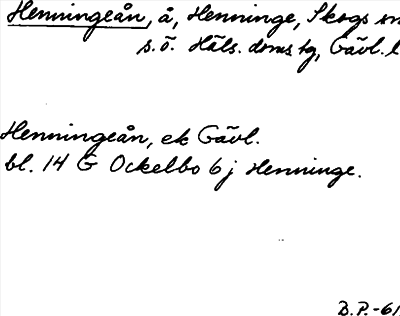 Henningeån, å, Henninge, Skogs sn
s.ö. Häls. doms tg, Gävl. l
Henningeån, ek Gävl.
bl. 14 G Ockelbo 6 j Henninge.
B.P.-61